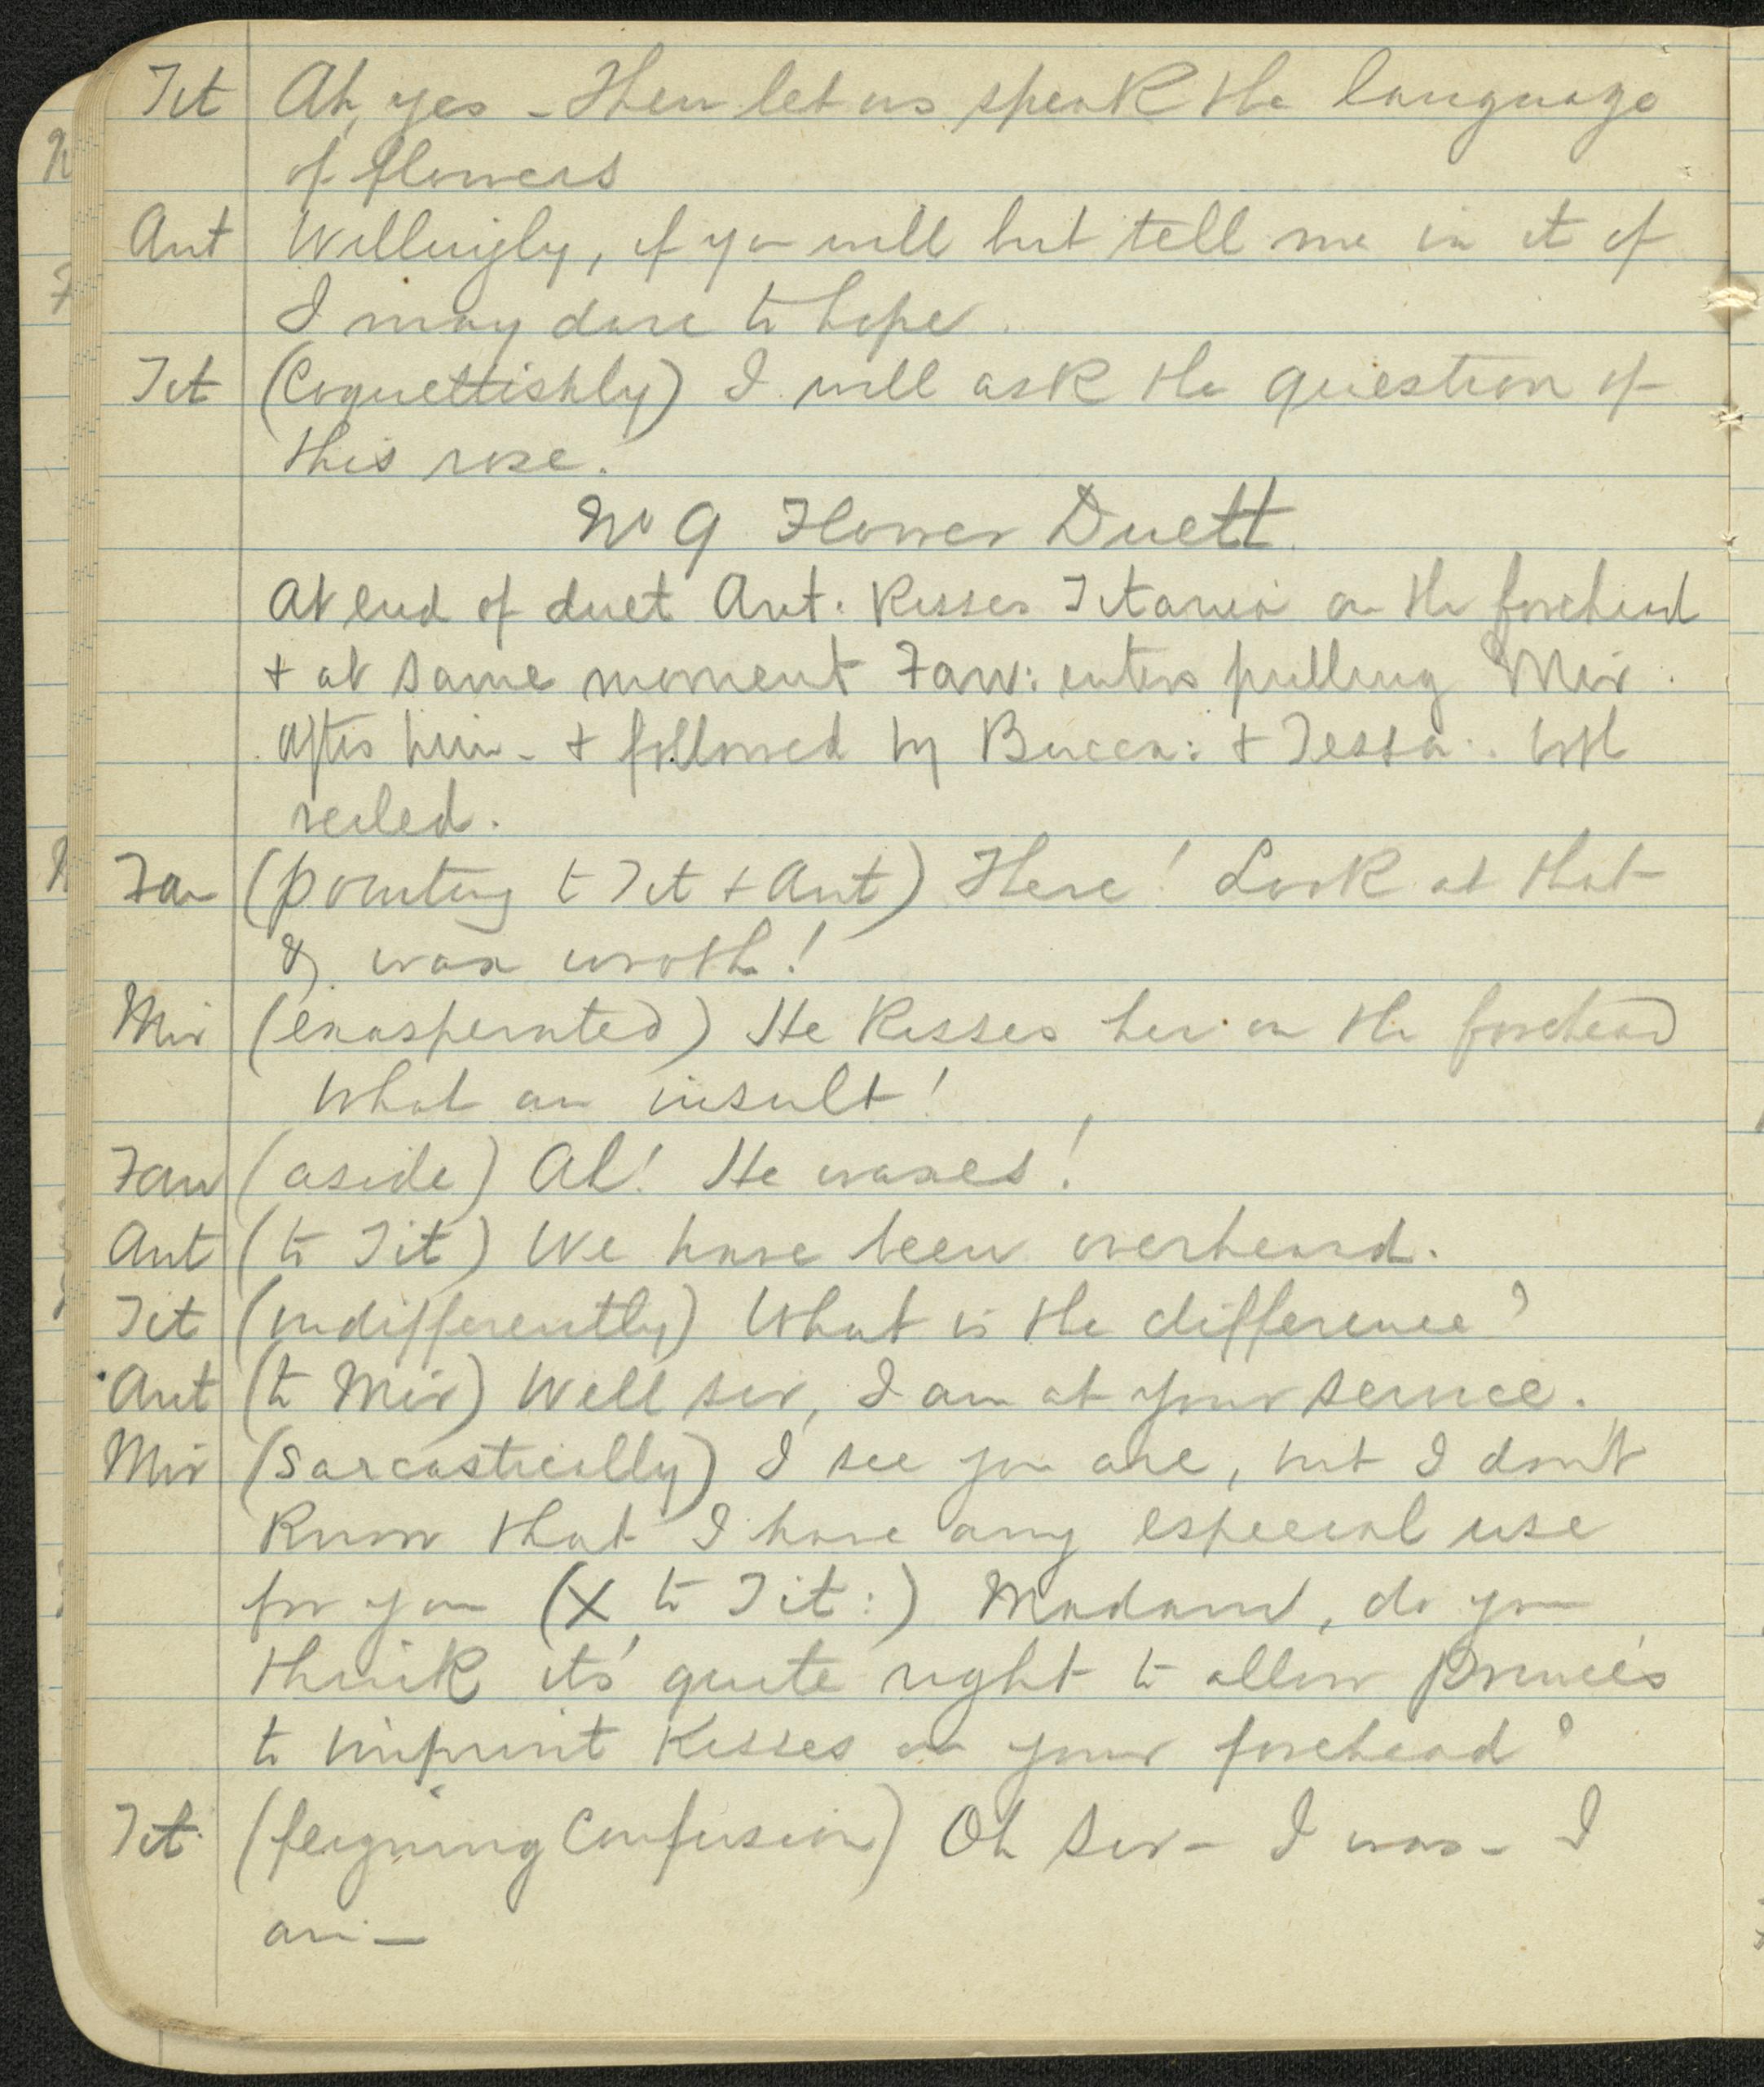 Tit Ah, yes - Then let us speak the language
of flowers
Ant Willingly, if you will but tell me in it if
I may dare to hope.
Tit (Coquettishly) I will ask the question of
this rose.
No 9 Flower Duett
At end of duet Ant: kisses Titania on the forehead
+ at same moment Faw: enters pulling Mir.
after him - + followed by Bucca: + Tessa: both
veiled.
Faw (pointing to Tit + Ant) There! Look at that
& wax wroth!
Mir (exasperated) He kisses her on the forehead
What an insult!
Faw (aside) Ah! He waxes!
Ant (to Tit) We have been overheard.
Tit (indifferently) What is the difference?
Ant (to Mir) Well sir, I am at your service.
Mir (Sarcastically) I see you are, but I don't
know that I have any especial use
for you (X to Tit:) Madam, do you
think its' quite right to allow Prince's
to imprint kisses on your forehead?
Tit (feigning Confusion) Oh Sir - I was - I
am -